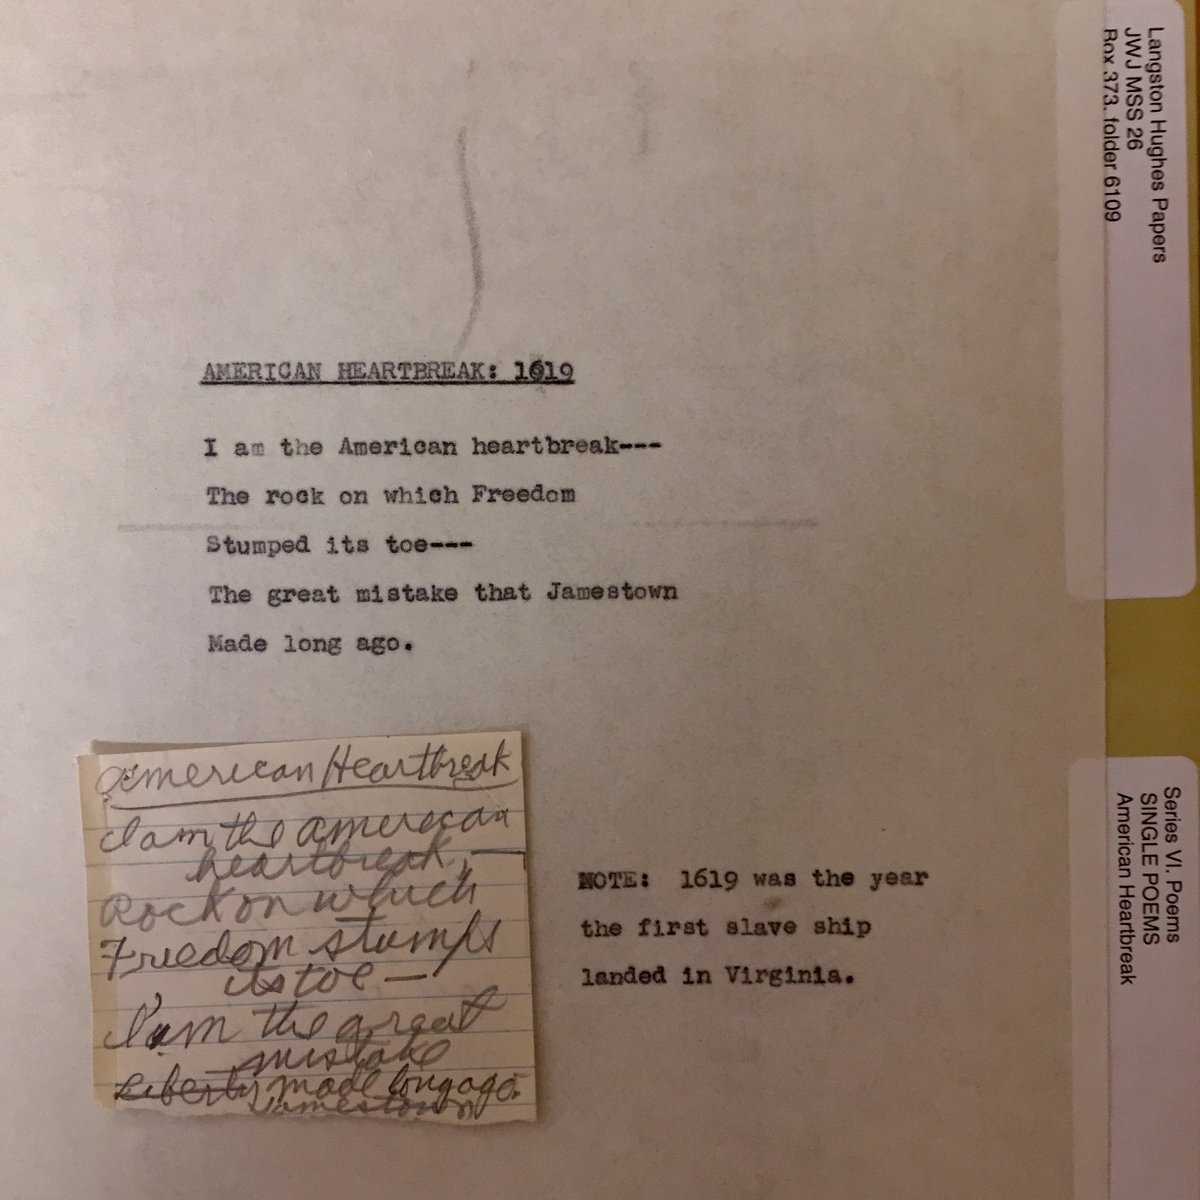 Langston Hughes Papers
JWJ MSS 26
Box 373, folder 6109
AMERICAN HEARTBREAK: 1619
I am the American heartbreak---
The rock on which Freedom
Stumped its toe---
The great mistake that Jamestown
Made long ago.
American Heartbreak
I am the American
heartbreak,—
Rock on which
Freedom stumps
its toe —
I'm the great
mistake
Liberty made long ago.
Jamestown
NOTE: 1619 was the year
the first slave ship
landed in Virginia.
Series VI. Poems
SINGLE POEMS
American Heartbreak